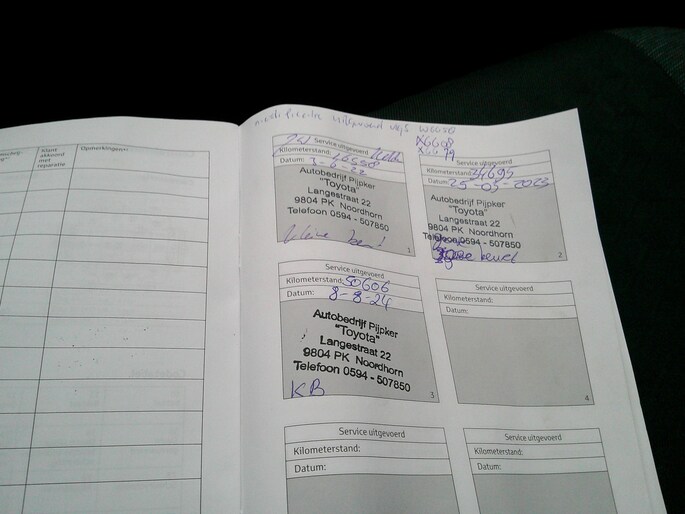 Klant
akkoord
met
reparatie
Opmerkingen
uitgevoerd
Service uitgevoerd
Kilometerstand:
Datum: 3-6-22
Autobedrijf Pijpker
"Toyota"
Langestraat 22
9804 PK Noordhorn
Telefoon 0594 - 507850
1
Service uitgevoerd
Kilometerstand: 44695
Datum: 25-05-2023
Autobedrijf Pijpker
"Toyota"
Langestraat 22
9804 PK Noordhorn
Telefoon 0594 - 507850
2
Service uitgevoerd
Kilometerstand: 50606
Datum: 8-8-24
Autobedrijf Pijpker
"Toyota"
Langestraat 22
9804 PK Noordhorn
Telefoon 0594 - 507850
KB
3
Service uitgevoerd
Kilometerstand:
Datum:
4
Service uitgevoerd
Kilometerstand:
Datum:
Service uitgevoerd
Kilometerstand:
Datum: